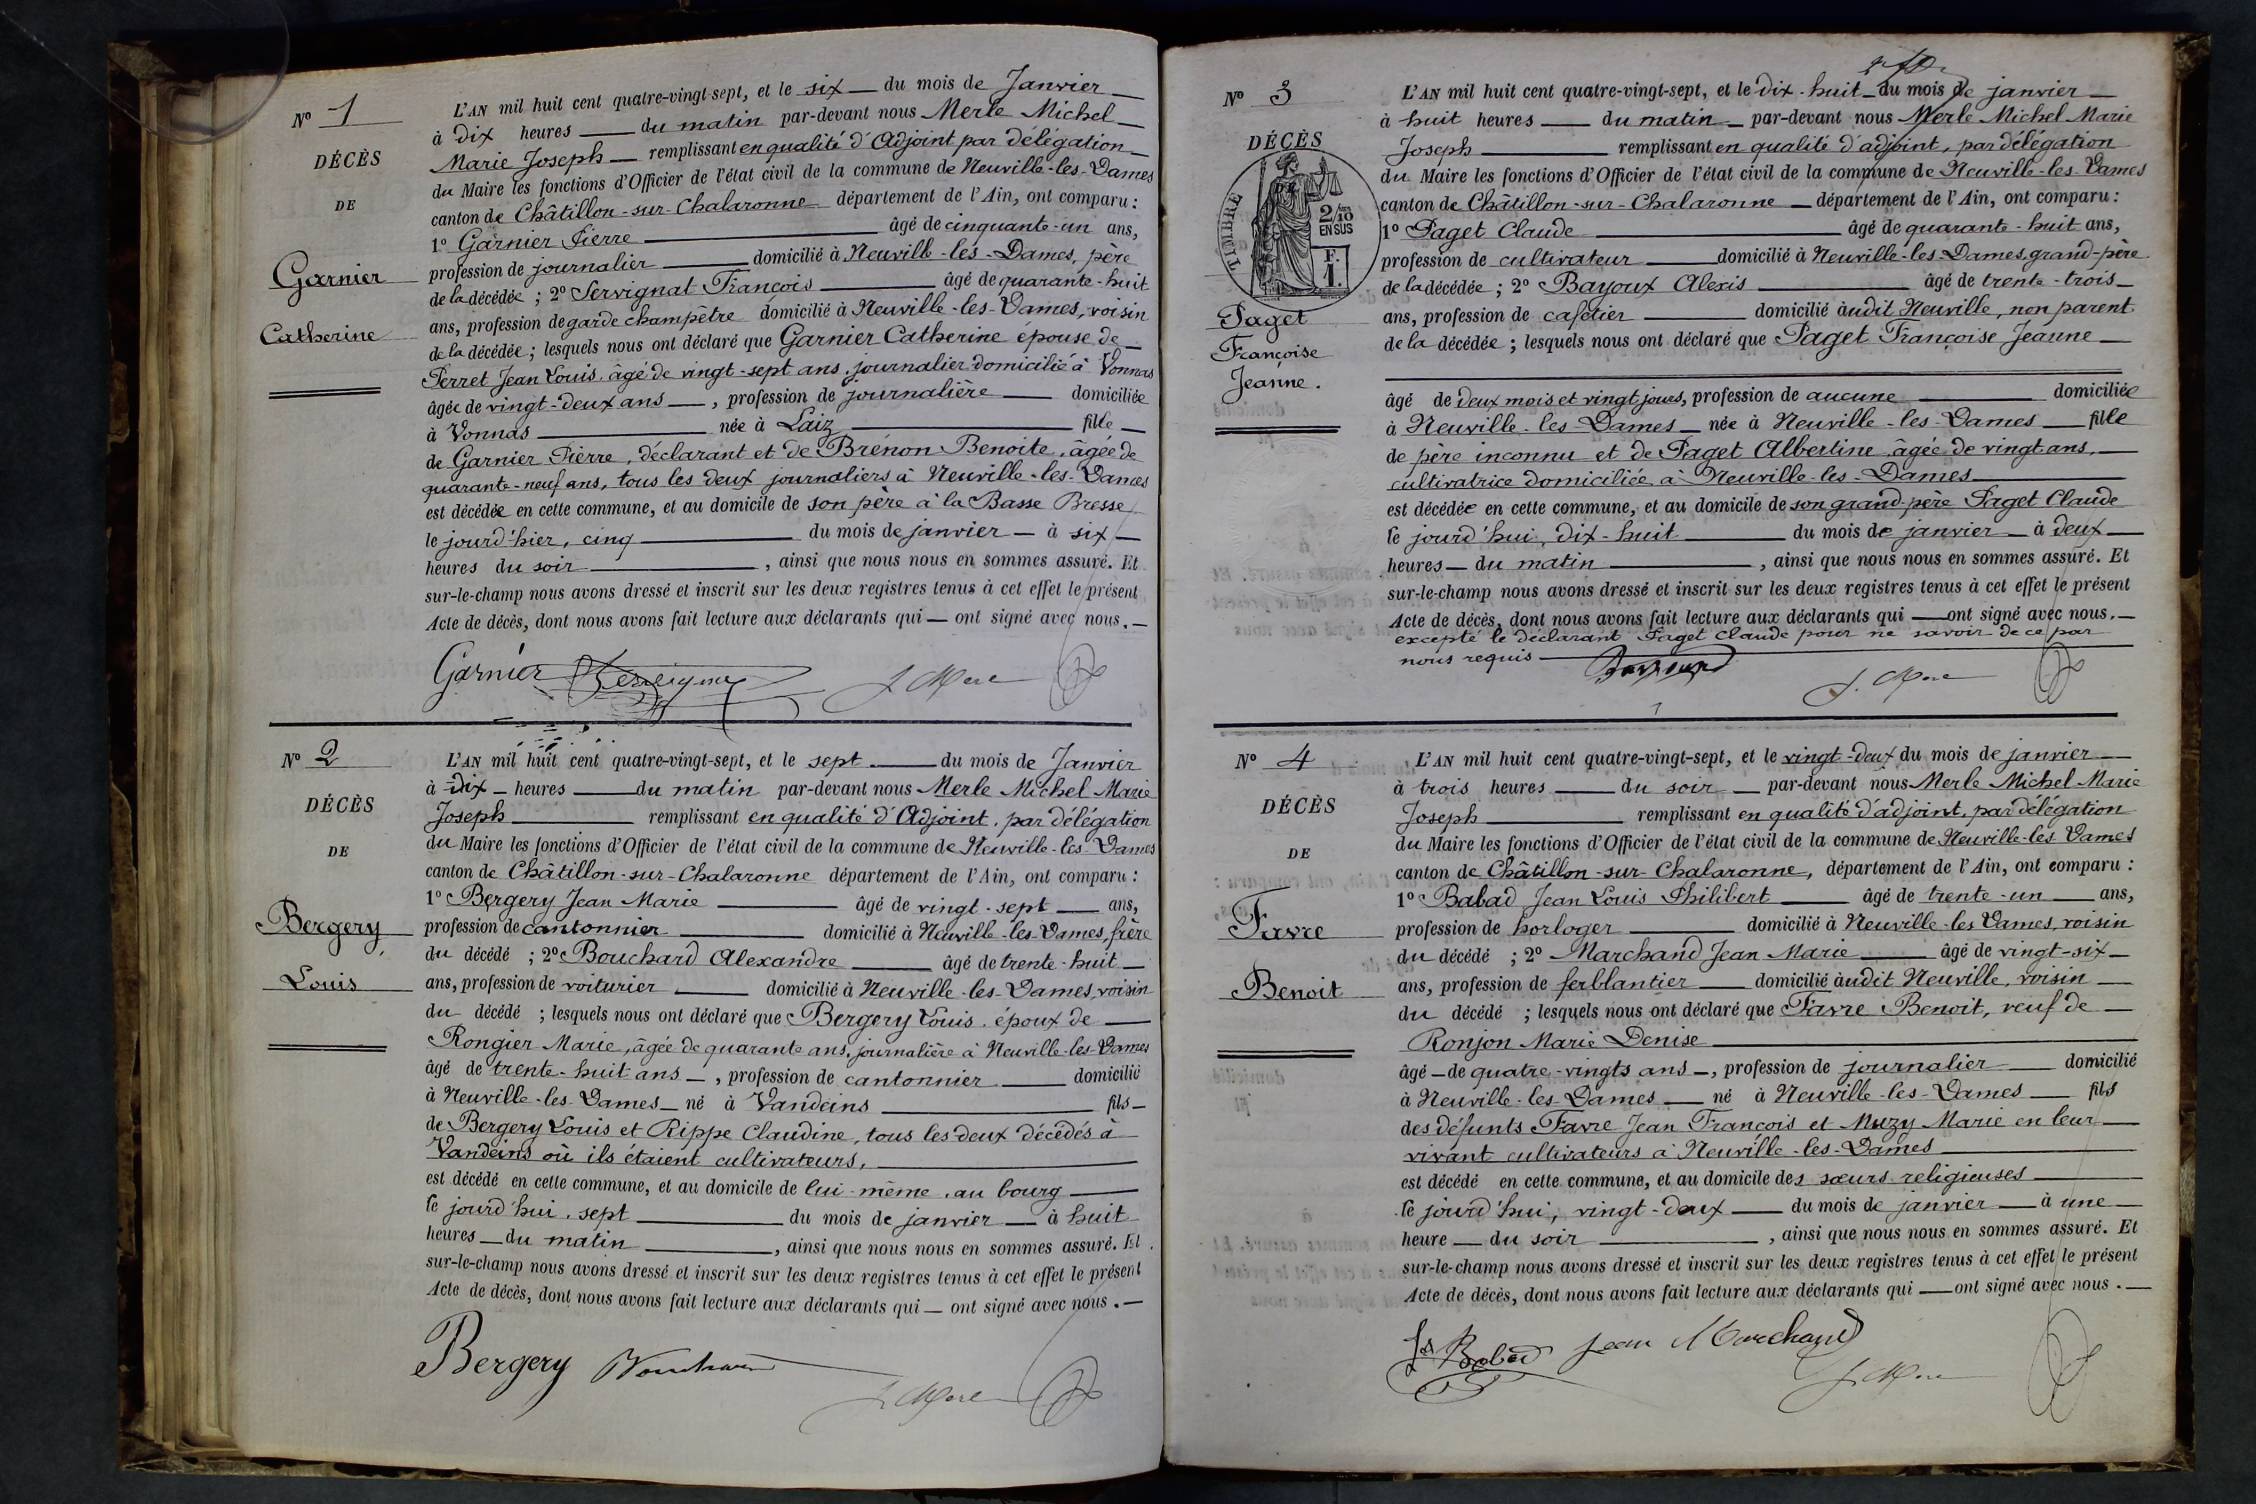 Nº 1
DÉCÈS
DE
Garnier
Catherine
L'AN mil huit cent quatre-vingt-sept, et le six — du mois de Janvier —
à dix heures — du matin par-devant nous Merle Michel —
Marie Joseph — remplissant en qualité d'Adjoint par délégation —
du Maire les fonctions d'Officier de l'état civil de la commune de Neuville-les-Dames
canton de Châtillon-sur-Chalaronne — département de l'Ain, ont comparu :
1º Garnier Pierre — âgé de cinquante-un ans,
profession de journalier — domicilié à Neuville-les-Dames, père
de la décédée ; 2º Servignat François — âgé de quarante-huit
ans, profession de garde champêtre domicilié à Neuville-les-Dames, voisin
de la décédée ; lesquels nous ont déclaré que Garnier Catherine épouse de —
Perret Jean Louis, âgé de vingt-sept ans, journalier domicilié à Vonnas
âgée de vingt-deux ans —, profession de journalière — domiciliée
à Vonnas — née à Laiz — fille —
de Garnier Pierre, déclarant et de Brénon Benoite, âgée de
quarante-neuf ans, tous les deux journaliers à Neuville-les-Dames
est décédée en cette commune, et au domicile de son père à la Basse Bresse
le jourd'hier, cinq — du mois de janvier — à six —
heures du soir —, ainsi que nous nous en sommes assuré. Et
sur-le-champ nous avons dressé et inscrit sur les deux registres tenus à cet effet le présent
Acte de décès, dont nous avons fait lecture aux déclarants qui — ont signé avec nous. —
Garnier Servignat J. Merle
Nº 2
DÉCÈS
DE
Bergery
Louis
L'AN mil huit cent quatre-vingt-sept, et le sept — du mois de Janvier
à Dix — heures — du matin par-devant nous Merle Michel Marie
Joseph — remplissant en qualité d'Adjoint, par délégation
du Maire les fonctions d'Officier de l'état civil de la commune de Neuville-les-Dames
canton de Châtillon-sur-Chalaronne département de l'Ain, ont comparu :
1º Bergery Jean Marie — âgé de vingt-sept — ans,
profession de cantonnier — domicilié à Neuville-les-Dames, frère
du décédé ; 2º Bouchard Alexandre — âgé de trente-huit —
ans, profession de voiturier — domicilié à Neuville-les-Dames, voisin
du décédé ; lesquels nous ont déclaré que Bergery Louis, époux de —
Rongier Marie, âgée de quarante ans, journalière à Neuville-les-Dames
âgé de trente-huit ans —, profession de cantonnier — domicilié
à Neuville-les-Dames — né à Vandeins — fils —
de Bergery Louis et Rippe Claudine, tous les deux décédés à
Vandeins où ils étaient cultivateurs, —
est décédé en cette commune, et au domicile de lui-même, au bourg —
le jourd'hui, sept — du mois de janvier — à huit
heures — du matin —, ainsi que nous nous en sommes assuré. Et
sur-le-champ nous avons dressé et inscrit sur les deux registres tenus à cet effet le présent
Acte de décès, dont nous avons fait lecture aux déclarants qui — ont signé avec nous. —
Bergery Bouchard
J. Merle
Nº 3
DÉCÈS
TIMBRE
2/10
EN SUS
F.
1.
Paget
Françoise
Jeanne.
L'AN mil huit cent quatre-vingt-sept, et le dix-huit — du mois de janvier —
à huit heures — du matin — par-devant nous Merle Michel Marie
Joseph — remplissant en qualité d'adjoint, par délégation
du Maire les fonctions d'Officier de l'état civil de la commune de Neuville-les-Dames
canton de Châtillon-sur-Chalaronne — département de l'Ain, ont comparu :
1º Paget Claude — âgé de quarante-huit ans,
profession de cultivateur — domicilié à Neuville-les-Dames, grand-père
de la décédée ; 2º Bayoux Alexis — âgé de trente-trois —
ans, profession de cafetier — domicilié àudit Neuville, non parent
de la décédée ; lesquels nous ont déclaré que Paget Françoise Jeanne —
âgé de deux mois et vingt jours, profession de aucune — domiciliée
à Neuville-les-Dames — née à Neuville-les-Dames — fille
de père inconnu et de Paget Albertine, âgée de vingt ans, —
cultivatrice domiciliée à Neuville-les-Dames —
est décédée en cette commune, et au domicile de son grand-père Paget Claude
le jourd'hui, dix-huit — du mois de janvier — à deux —
heures — du matin —, ainsi que nous nous en sommes assuré. Et
sur-le-champ nous avons dressé et inscrit sur les deux registres tenus à cet effet le présent
Acte de décès, dont nous avons fait lecture aux déclarants qui — ont signé avec nous. —
excepté le déclarant Paget Claude pour ne savoir de ce par
nous requis —
J. Merle
Nº 4
DÉCÈS
DE
Favre
Benoit
L'AN mil huit cent quatre-vingt-sept, et le vingt-deux du mois de janvier —
à trois heures — du soir — par-devant nous Merle Michel Marie
Joseph — remplissant en qualité d'adjoint, par délégation
du Maire les fonctions d'Officier de l'état civil de la commune de Neuville-les-Dames
canton de Châtillon-sur-Chalaronne, département de l'Ain, ont comparu :
1º Babad Jean Louis Philibert — âgé de trente-un — ans,
profession de horloger — domicilié à Neuville-les-Dames, voisin
du décédé ; 2º Marchand Jean Marie — âgé de vingt-six —
ans, profession de ferblantier — domicilié àudit Neuville, voisin —
du décédé ; lesquels nous ont déclaré que Favre Benoit, veuf de —
Ronjon Marie Denise —
âgé — de quatre-vingts ans —, profession de journalier — domicilié
à Neuville-les-Dames — né à Neuville-les-Dames — fils
des défunts Favre Jean François et Muzy Marie en leur —
vivant cultivateurs à Neuville-les-Dames —
est décédé en cette commune, et au domicile des sœurs religieuses —
le jourd'hui, vingt-deux — du mois de janvier — à une —
heure — du soir —, ainsi que nous nous en sommes assuré. Et
sur-le-champ nous avons dressé et inscrit sur les deux registres tenus à cet effet le présent
Acte de décès, dont nous avons fait lecture aux déclarants qui — ont signé avec nous. —
Babad Jean Marchand
J. Merle